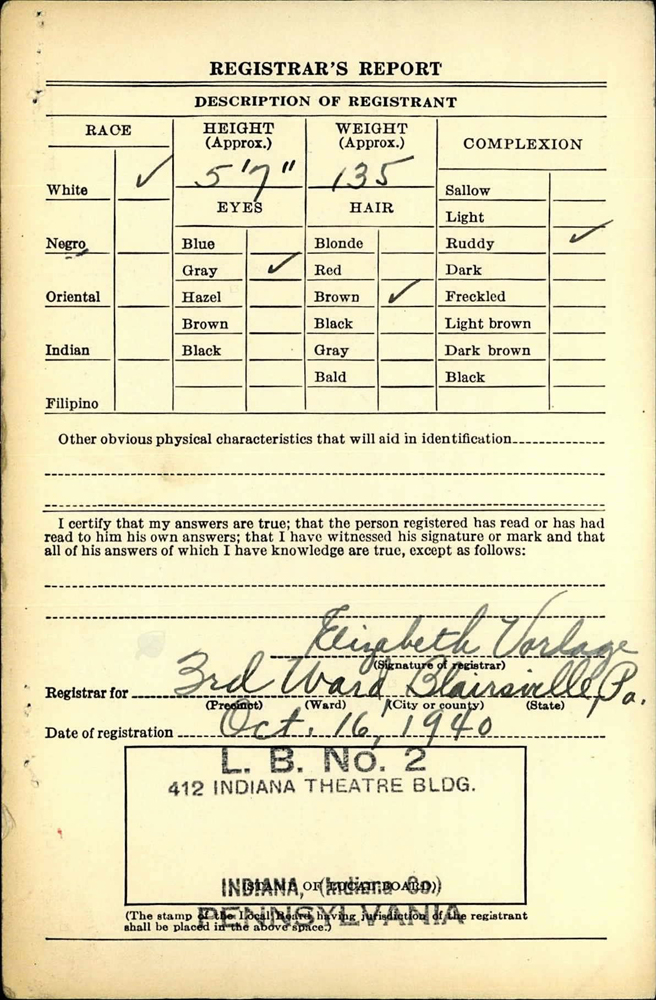 REGISTRAR'S REPORT
DESCRIPTION OF REGISTRANT
RACE
HEIGHT (Approx.)
WEIGHT (Approx.)
COMPLEXION
White ✓
5'7"
135
Sallow
EYES
HAIR
Light
Negro
Blue
Blonde
Ruddy ✓
Gray ✓
Red
Dark
Oriental
Hazel
Brown ✓
Freckled
Brown
Black
Light brown
Indian
Black
Gray
Dark brown
Bald
Black
Filipino
Other obvious physical characteristics that will aid in identification
I certify that my answers are true; that the person registered has read or has had
read to him his own answers; that I have witnessed his signature or mark and that
all of his answers of which I have knowledge are true, except as follows:
Elizabeth Vorlage
(Signature of registrar)
Registrar for 3rd Ward Blairsville, Pa.
(Precinct) (Ward) (City or county) (State)
Date of registration Oct. 16, 1940
L. B. No. 2
412 INDIANA THEATRE BLDG.
INDIANA, (Indiana Co.)
(STAMP OF LOCAL BOARD)
PENNSYLVANIA
(The stamp of the Local Board having jurisdiction of the registrant
shall be placed in the above space.)